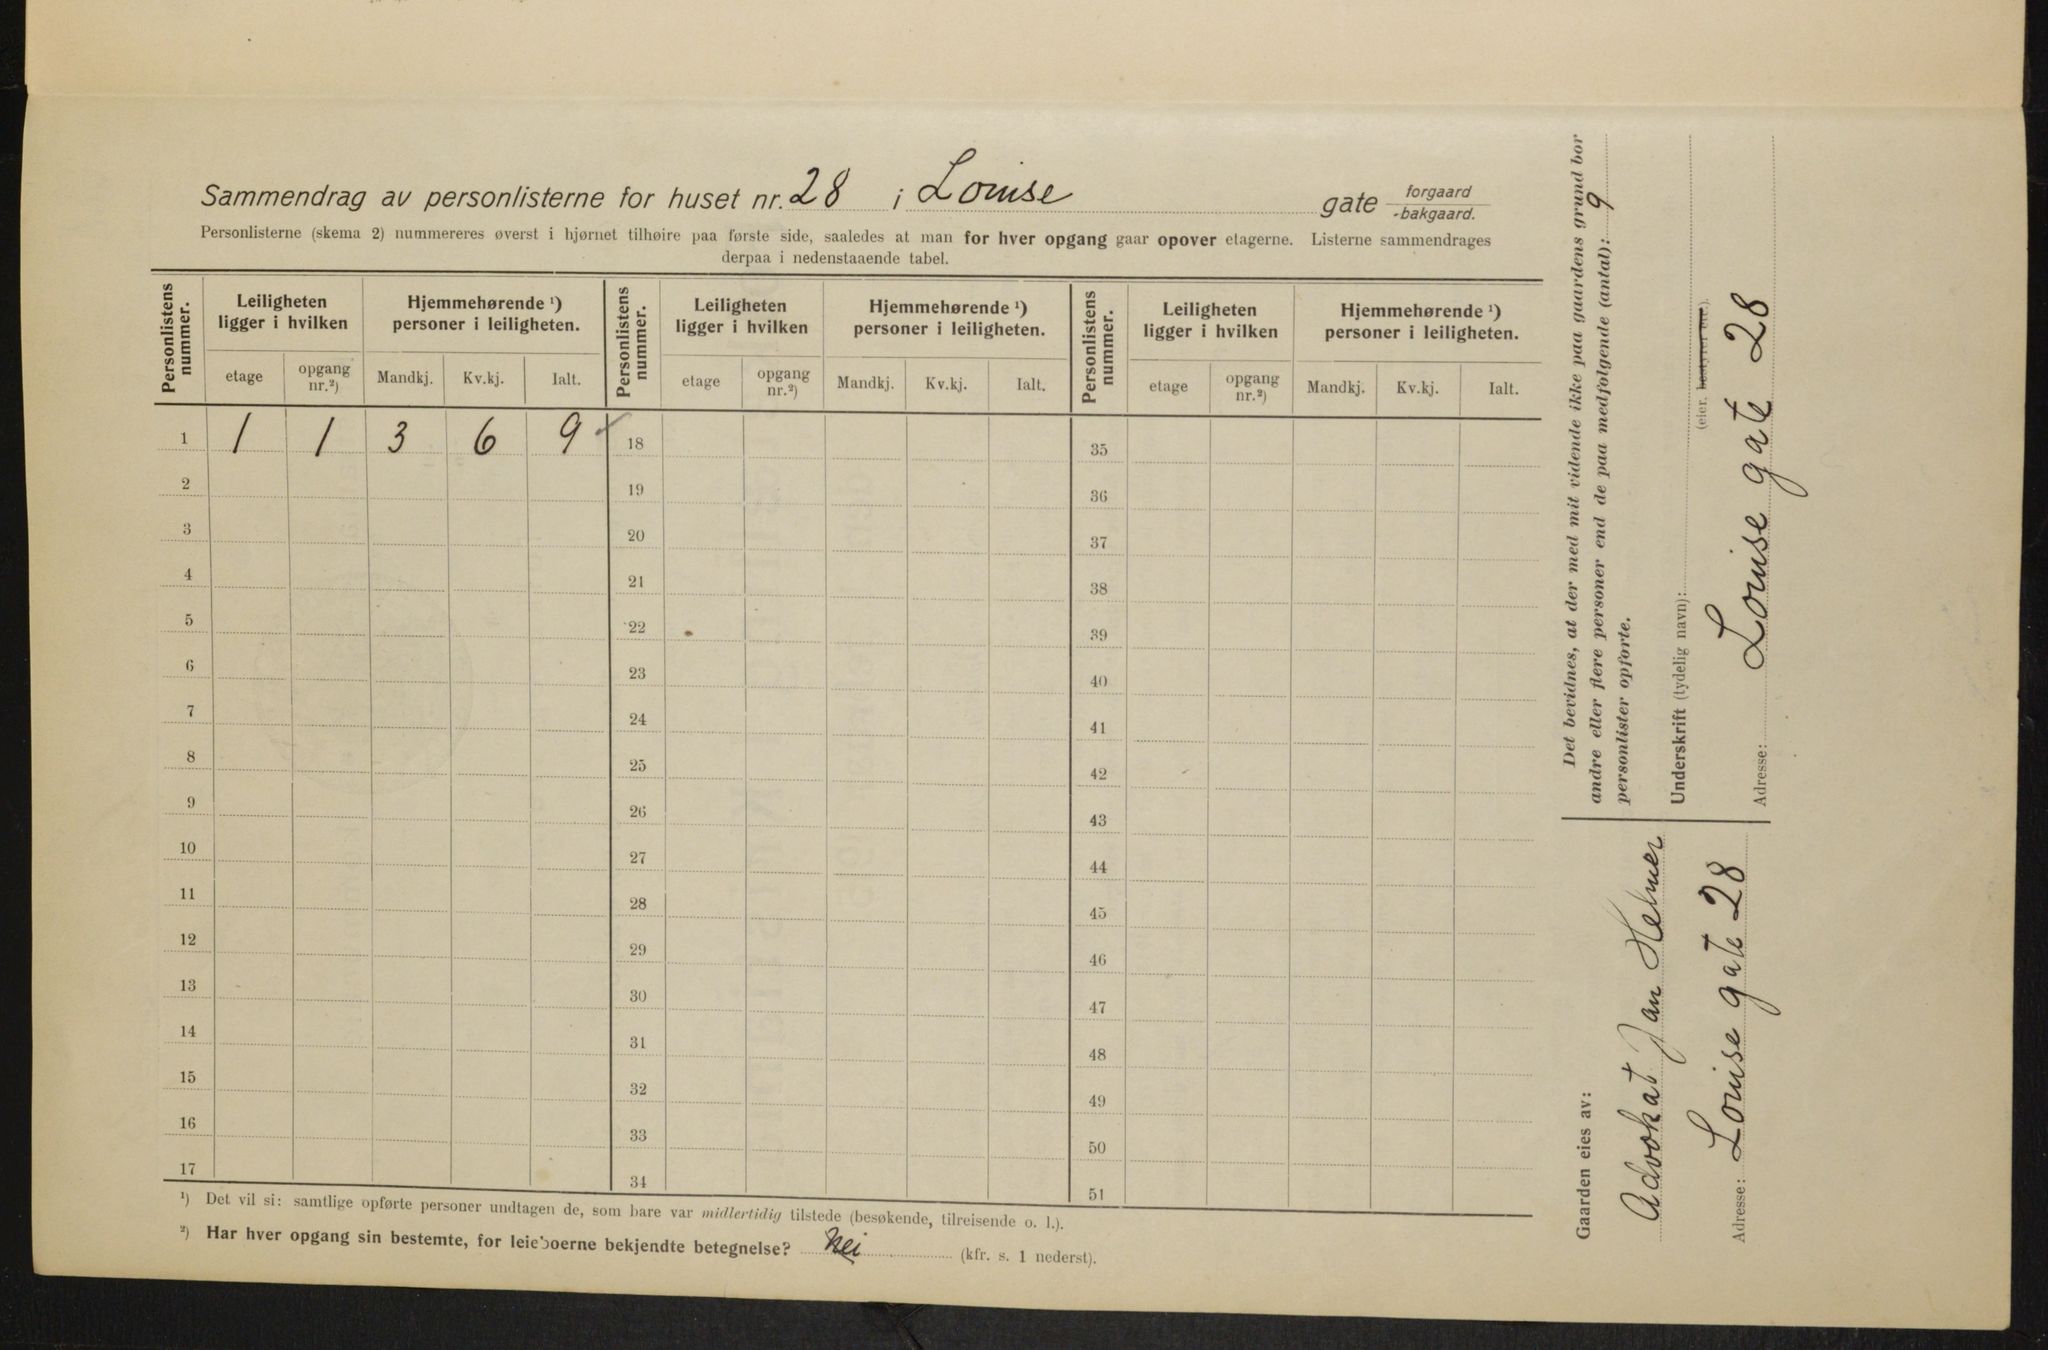 Sammendrag av personlisterne for huset nr. 28 i Louise gate forgaard
-bakgaard.
Personlisterne (skema 2) nummereres øverst i hjørnet tilhøire paa første side, saaledes at man for hver opgang gaar opover etagerne. Listerne sammendrages
derpaa i nedenstaaende tabel.
Personlistens nummer. Leiligheten ligger i hvilken Hjemmehørende ¹) personer i leiligheten. Personlistens nummer. Leiligheten ligger i hvilken Hjemmehørende ¹) personer i leiligheten. Personlistens nummer. Leiligheten ligger i hvilken Hjemmehørende ¹) personer i leiligheten.
etage opgang nr.²) Mandkj. Kv.kj. Ialt. etage opgang nr.²) Mandkj. Kv.kj. Ialt. etage opgang nr.²) Mandkj. Kv.kj. Ialt.
1 1 1 3 6 9 18 35
2 19 36
3 20 37
4 21 38
5 22 39
6 23 40
7 24 41
8 25 42
9 26 43
10 27 44
11 28 45
12 29 46
13 30 47
14 31 48
15 32 49
16 33 50
17 34 51
¹) Det vil si: samtlige opførte personer undtagen de, som bare var midlertidig tilstede (besøkende, tilreisende o. l.).
²) Har hver opgang sin bestemte, for leieboerne bekjendte betegnelse? Nei (kfr. s. 1 nederst).
Det bevidnes, at der med mit vidende ikke paa gaardens grund bor
andre eller flere personer end de paa medfølgende (antal): 9
personlister opførte.
Underskrift (tydelig navn):
(eier, bestyrer etc.).
Louise gate 28
Adresse:
Gaarden eies av:
Advokat Jan Helmer
Adresse: Louise gate 28